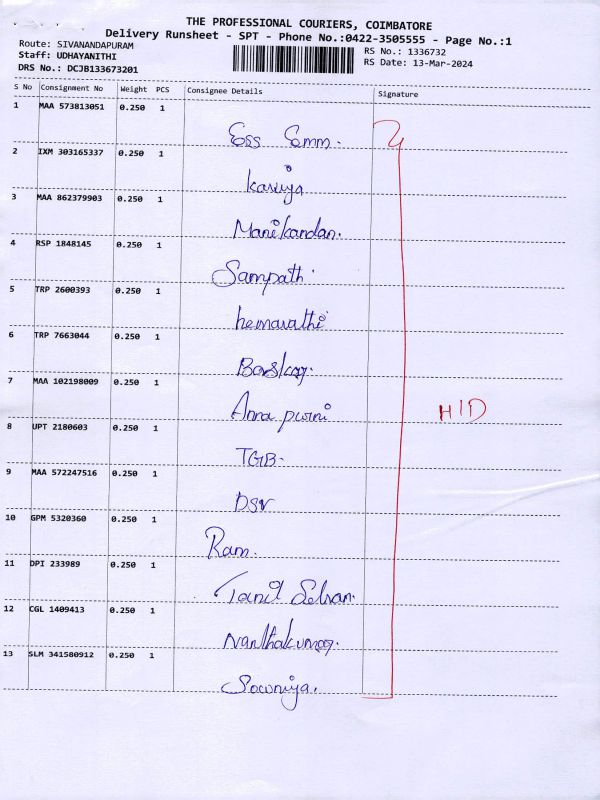 THE PROFESSIONAL COURIERS, COIMBATORE
Delivery Runsheet - SPT - Phone No.:0422-3505555 - Page No.:1
Route: SIVANANDAPURAM
RS No.: 1336732
Staff: UDHAYANITHI
RS Date: 13-Mar-2024
DRS No.: DCJB133673201
S No Consignment No Weight PCS Consignee Details Signature
1 MAA 573813051 0.250 1
Ess Emm.
2 IXM 303165337 0.250 1
3 MAA 862379903 0.250 1
Manikandan.
4 RSP 1848145 0.250 1
Sampath.
5 TRP 2600393 0.250 1
hemavathi
6 TRP 7663044 0.250 1
7 MAA 102198009 0.250 1
Anna purni
H/D
8 UPT 2180603 0.250 1
TGB.
9 MAA 572247516 0.250 1
DSV
10 GPM 5320360 0.250 1
Ram.
11 DPI 233989 0.250 1
Tamil Selvan.
12 CGL 1409413 0.250 1
Nanthakumar.
13 SLM 341580912 0.250 1
Sowmiya.